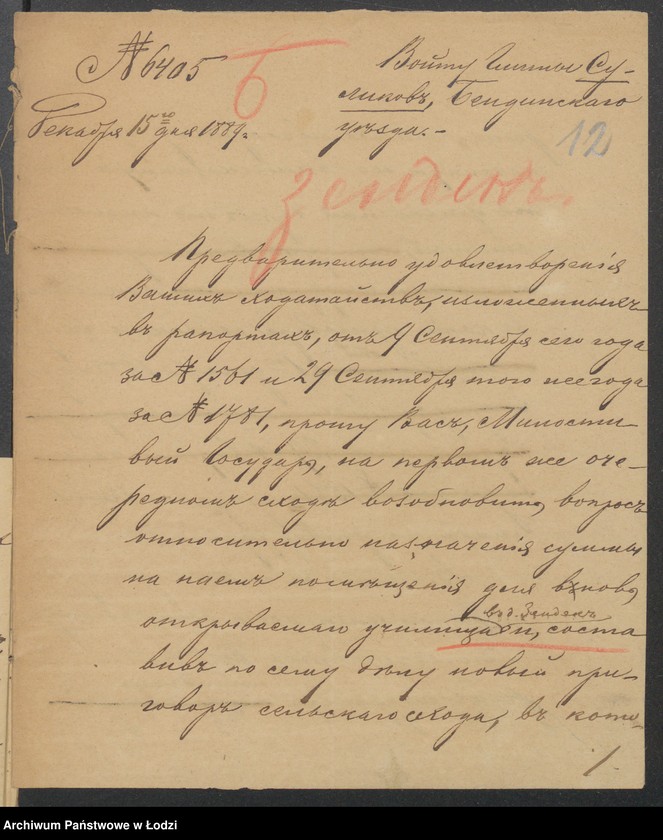 № 6405
Б
Декабря 15го дня 1889.
Войту Гмины Су-
ликовъ, Бендинскаго
уѣзда.-
12
Зендекъ.
Предварительно удовлетворенія
Вашихъ ходатайствъ, изложенныхъ
въ рапортахъ, отъ 9 Сентября сего года
за № 1561 и 29 Сентября того же года
за № 1781, прошу Васъ, Милости-
вый Государь, на первомъ же оче-
редномъ сходѣ возобновить вопросъ
относительно назначенія суммы
на наемъ помѣщенія для вновь
въ д. Зендекъ
открываемаго училища и, соста
вивъ по сему дѣлу новый при-
говоръ сельскаго схода, въ кото-
1.
Archiwum Państwowe w Łodzi